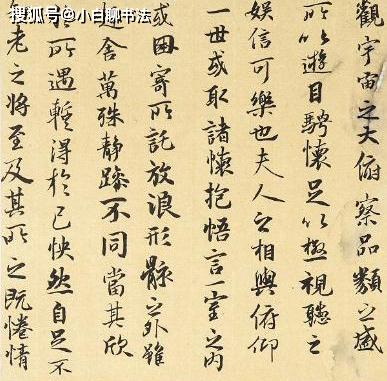 搜狐号@小白聊书法
觀宇宙之大俯察品類之盛
所以遊目騁懷足以極視聽之
娛信可樂也夫人之相與俯仰
一世或取諸懷抱悟言一室之內
或因寄所託放浪形骸之外雖
趣舍萬殊靜躁不同當其欣
於所遇輒得於己怏然自足不
老之將至及其所之既惓情